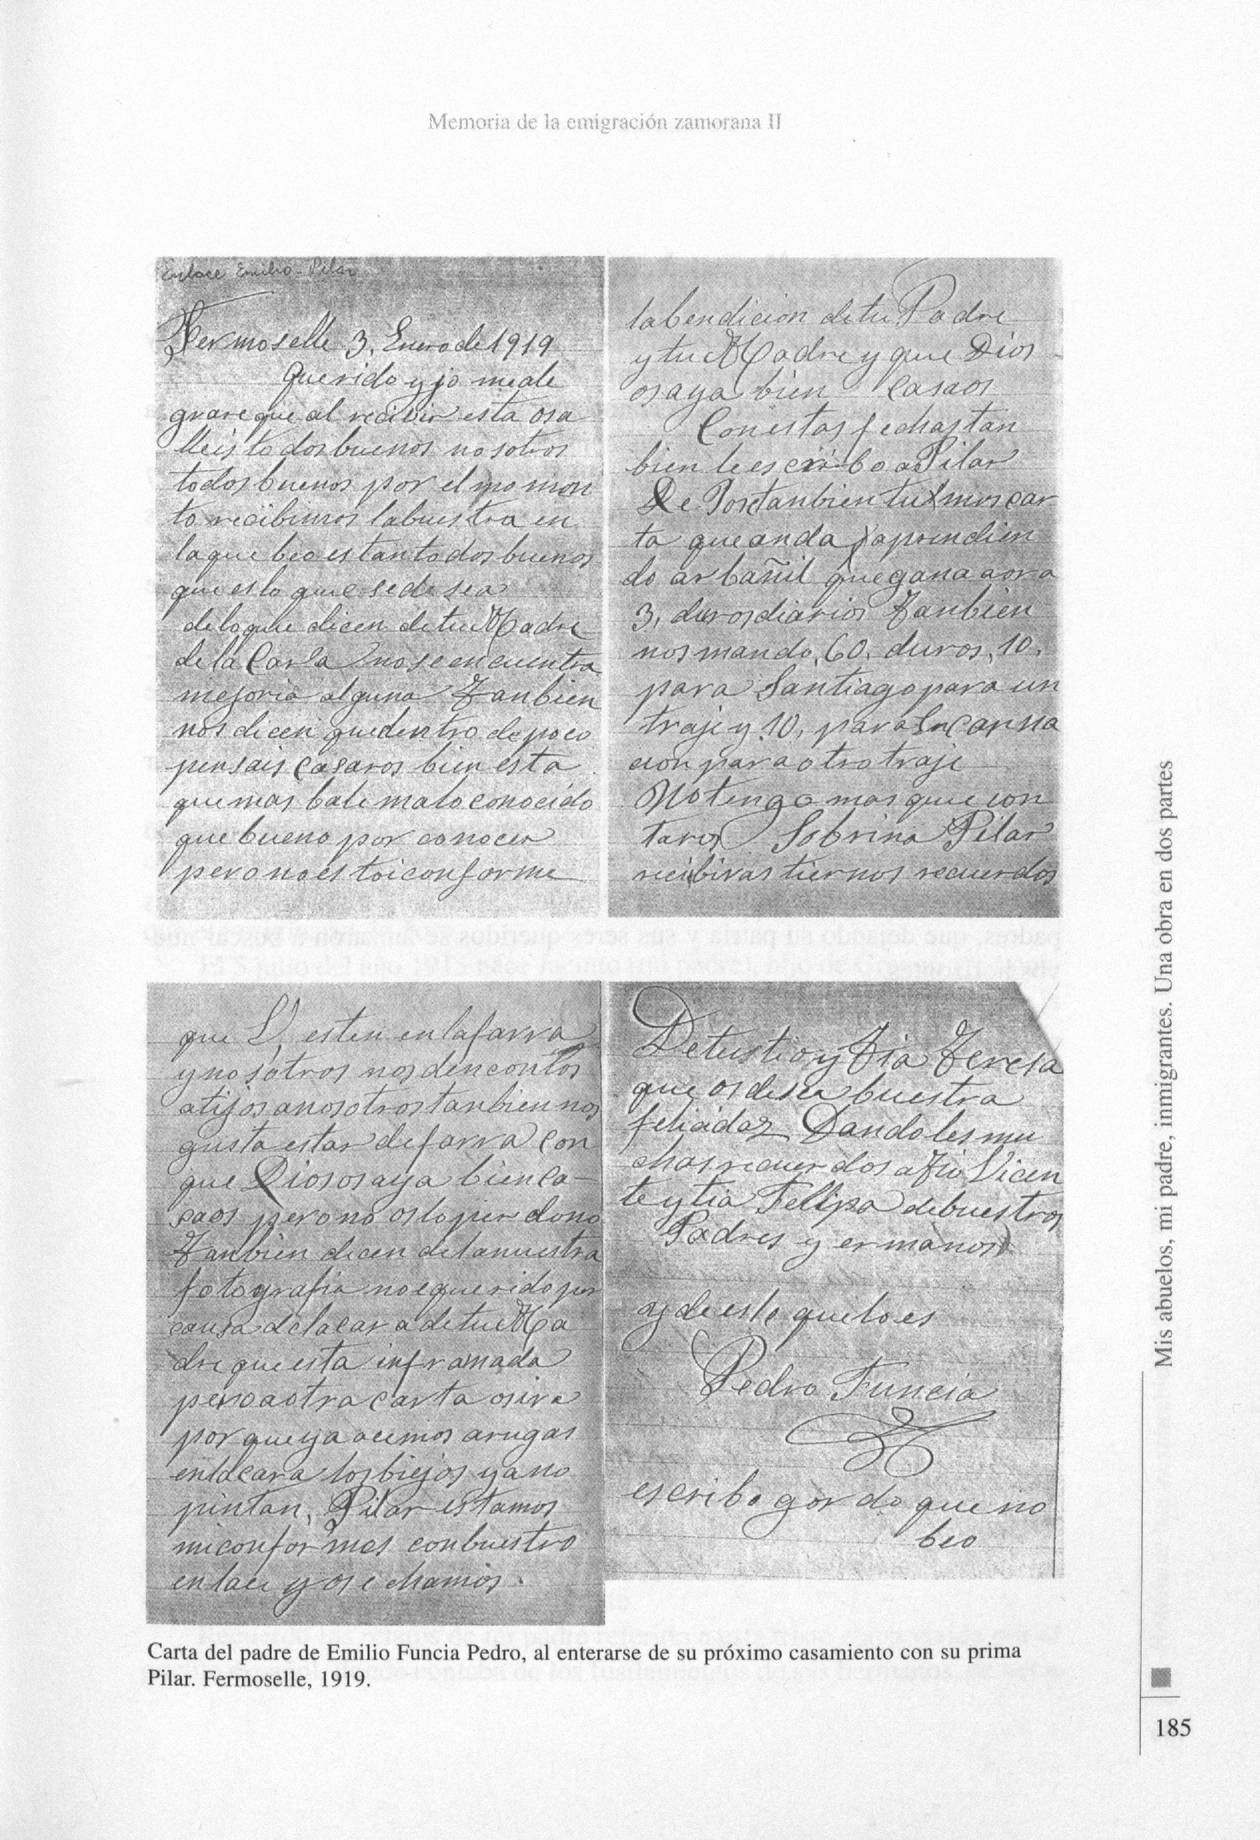 Memoria de la emigración zamorana II
Enlace Emilio - Pilar
Fermoselle 3, Enero de 1919
Querido yjo me ale
grare que al recivir esta osa
lleis todos buenos nosotros
todos buenos por el momon
to recibimos la buestra en
la que beo estan todos buenos
que es lo que se desea
de lo que dicen de tu Madre
de la Cara no se encuentra
mejoria alguna Tanbien
nos dicen que dentro de poco
pensais casaros bien esta
que mas bale malo conocido
que bueno por conocer
pero no estoi conforme
la bendicion de tu Padre
y tu Madre y que Dios
os aya bien casaos
Con estas fechas tan
bien le escribo a Pilar
De Jose tanbien tubimos car
ta que anda aprendien
do arbañil que gana aora
3, duros diarios Tanbien
nos mando, 60, duros, 10,
para Santiago para un
traje y 10, para Encarna
cion para otro traje
No tengo mas que con
taros Sobrina Pilar
recibiras tiernos recuerdos
que V, esten en la farra
y nosotros nos den contos
a tijos a nosotros tanbien nos
gusta estar de farra con
que Dios os aya bien ca-
saos pero no os lo perdono
Tanbien dicen de la nuestra
fotografia no e querido por
causa de la cara de tu Ma
dre que esta inframada
pero a otra carta os ira
por que ya acemos arugas
en la cara los biejos ya no
pintan, Pilar estamos
mi conformes con buestro
enlace y os echamos
De tus tio y Tia Teresa
que os desea buestra
felicidaz Dandoles mu
chas recuerdos a Tio Vicen
te y tia Felipa de buestros
Padres y ermanos
y de este que lo es
Pedro Funcia
escribo gordo que no
beo
Carta del padre de Emilio Funcia Pedro, al enterarse de su próximo casamiento con su prima
Pilar. Fermoselle, 1919.
Mis abuelos, mi padre, inmigrantes. Una obra en dos partes
185